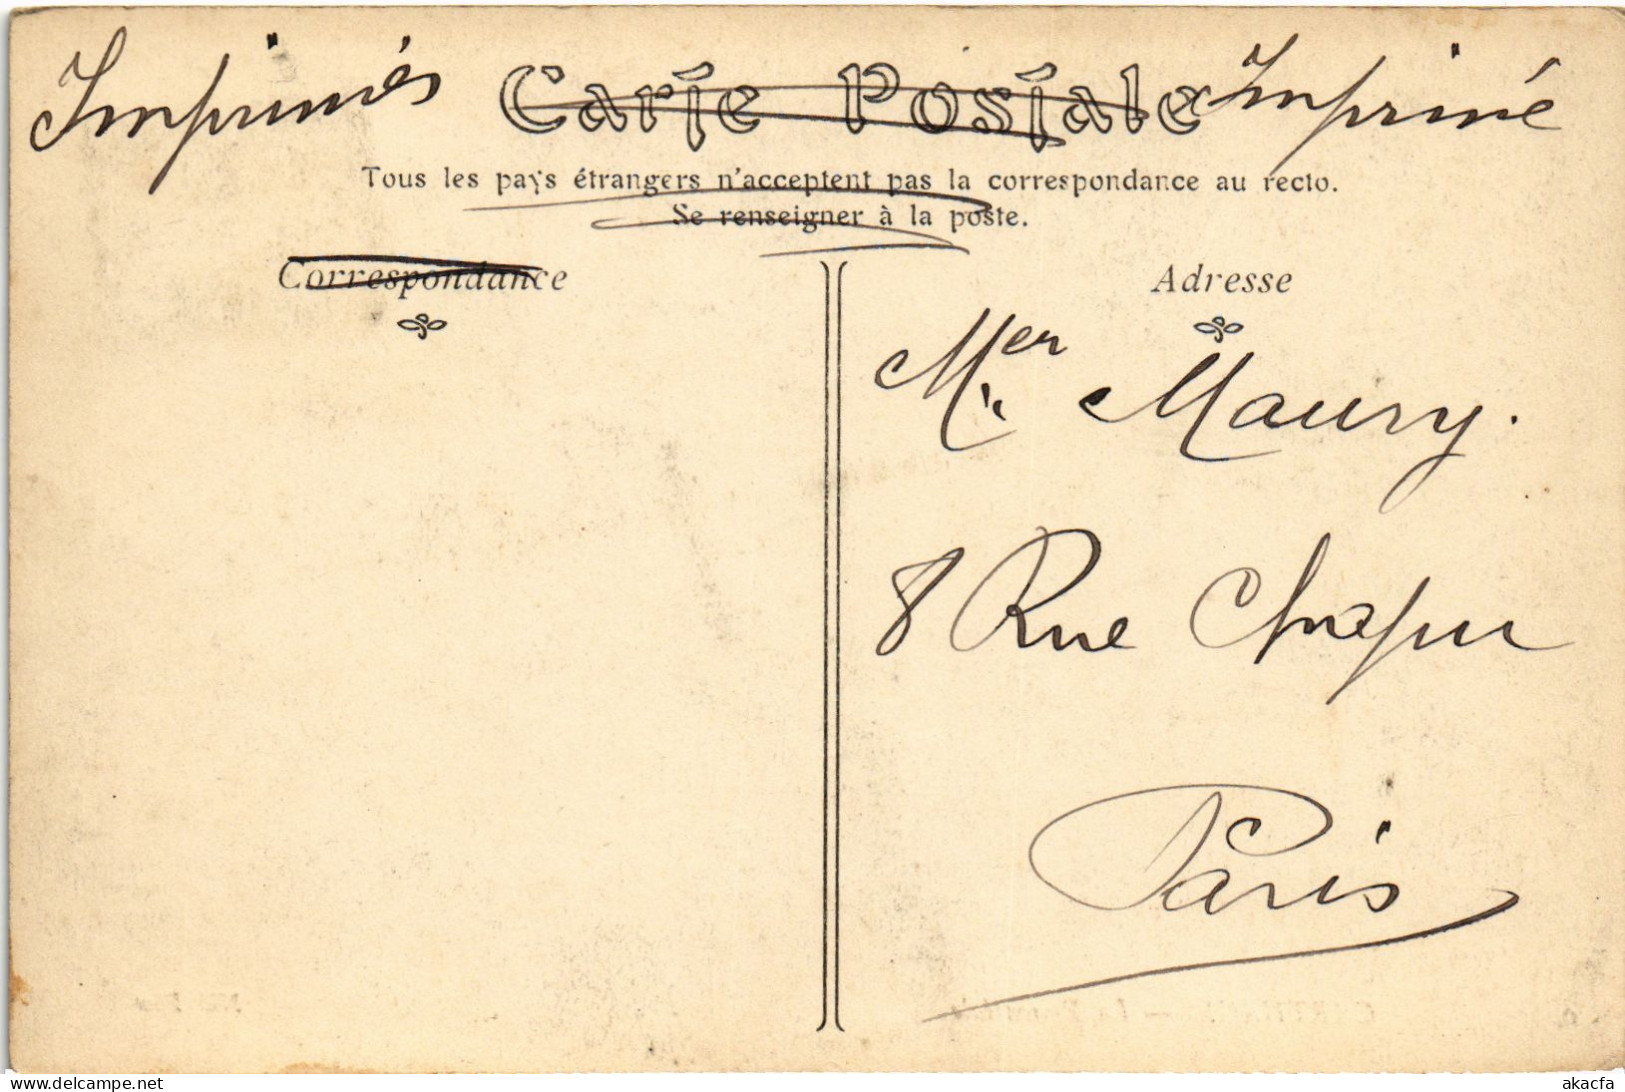 Imprimés Carte Postale Imprimé
Tous les pays étrangers n'acceptent pas la correspondance au recto.
Se renseigner à la poste.
Correspondance
Adresse
Mer Maury.
8 Rue
Paris
CARTHAGE
delcampe.net
akacfa